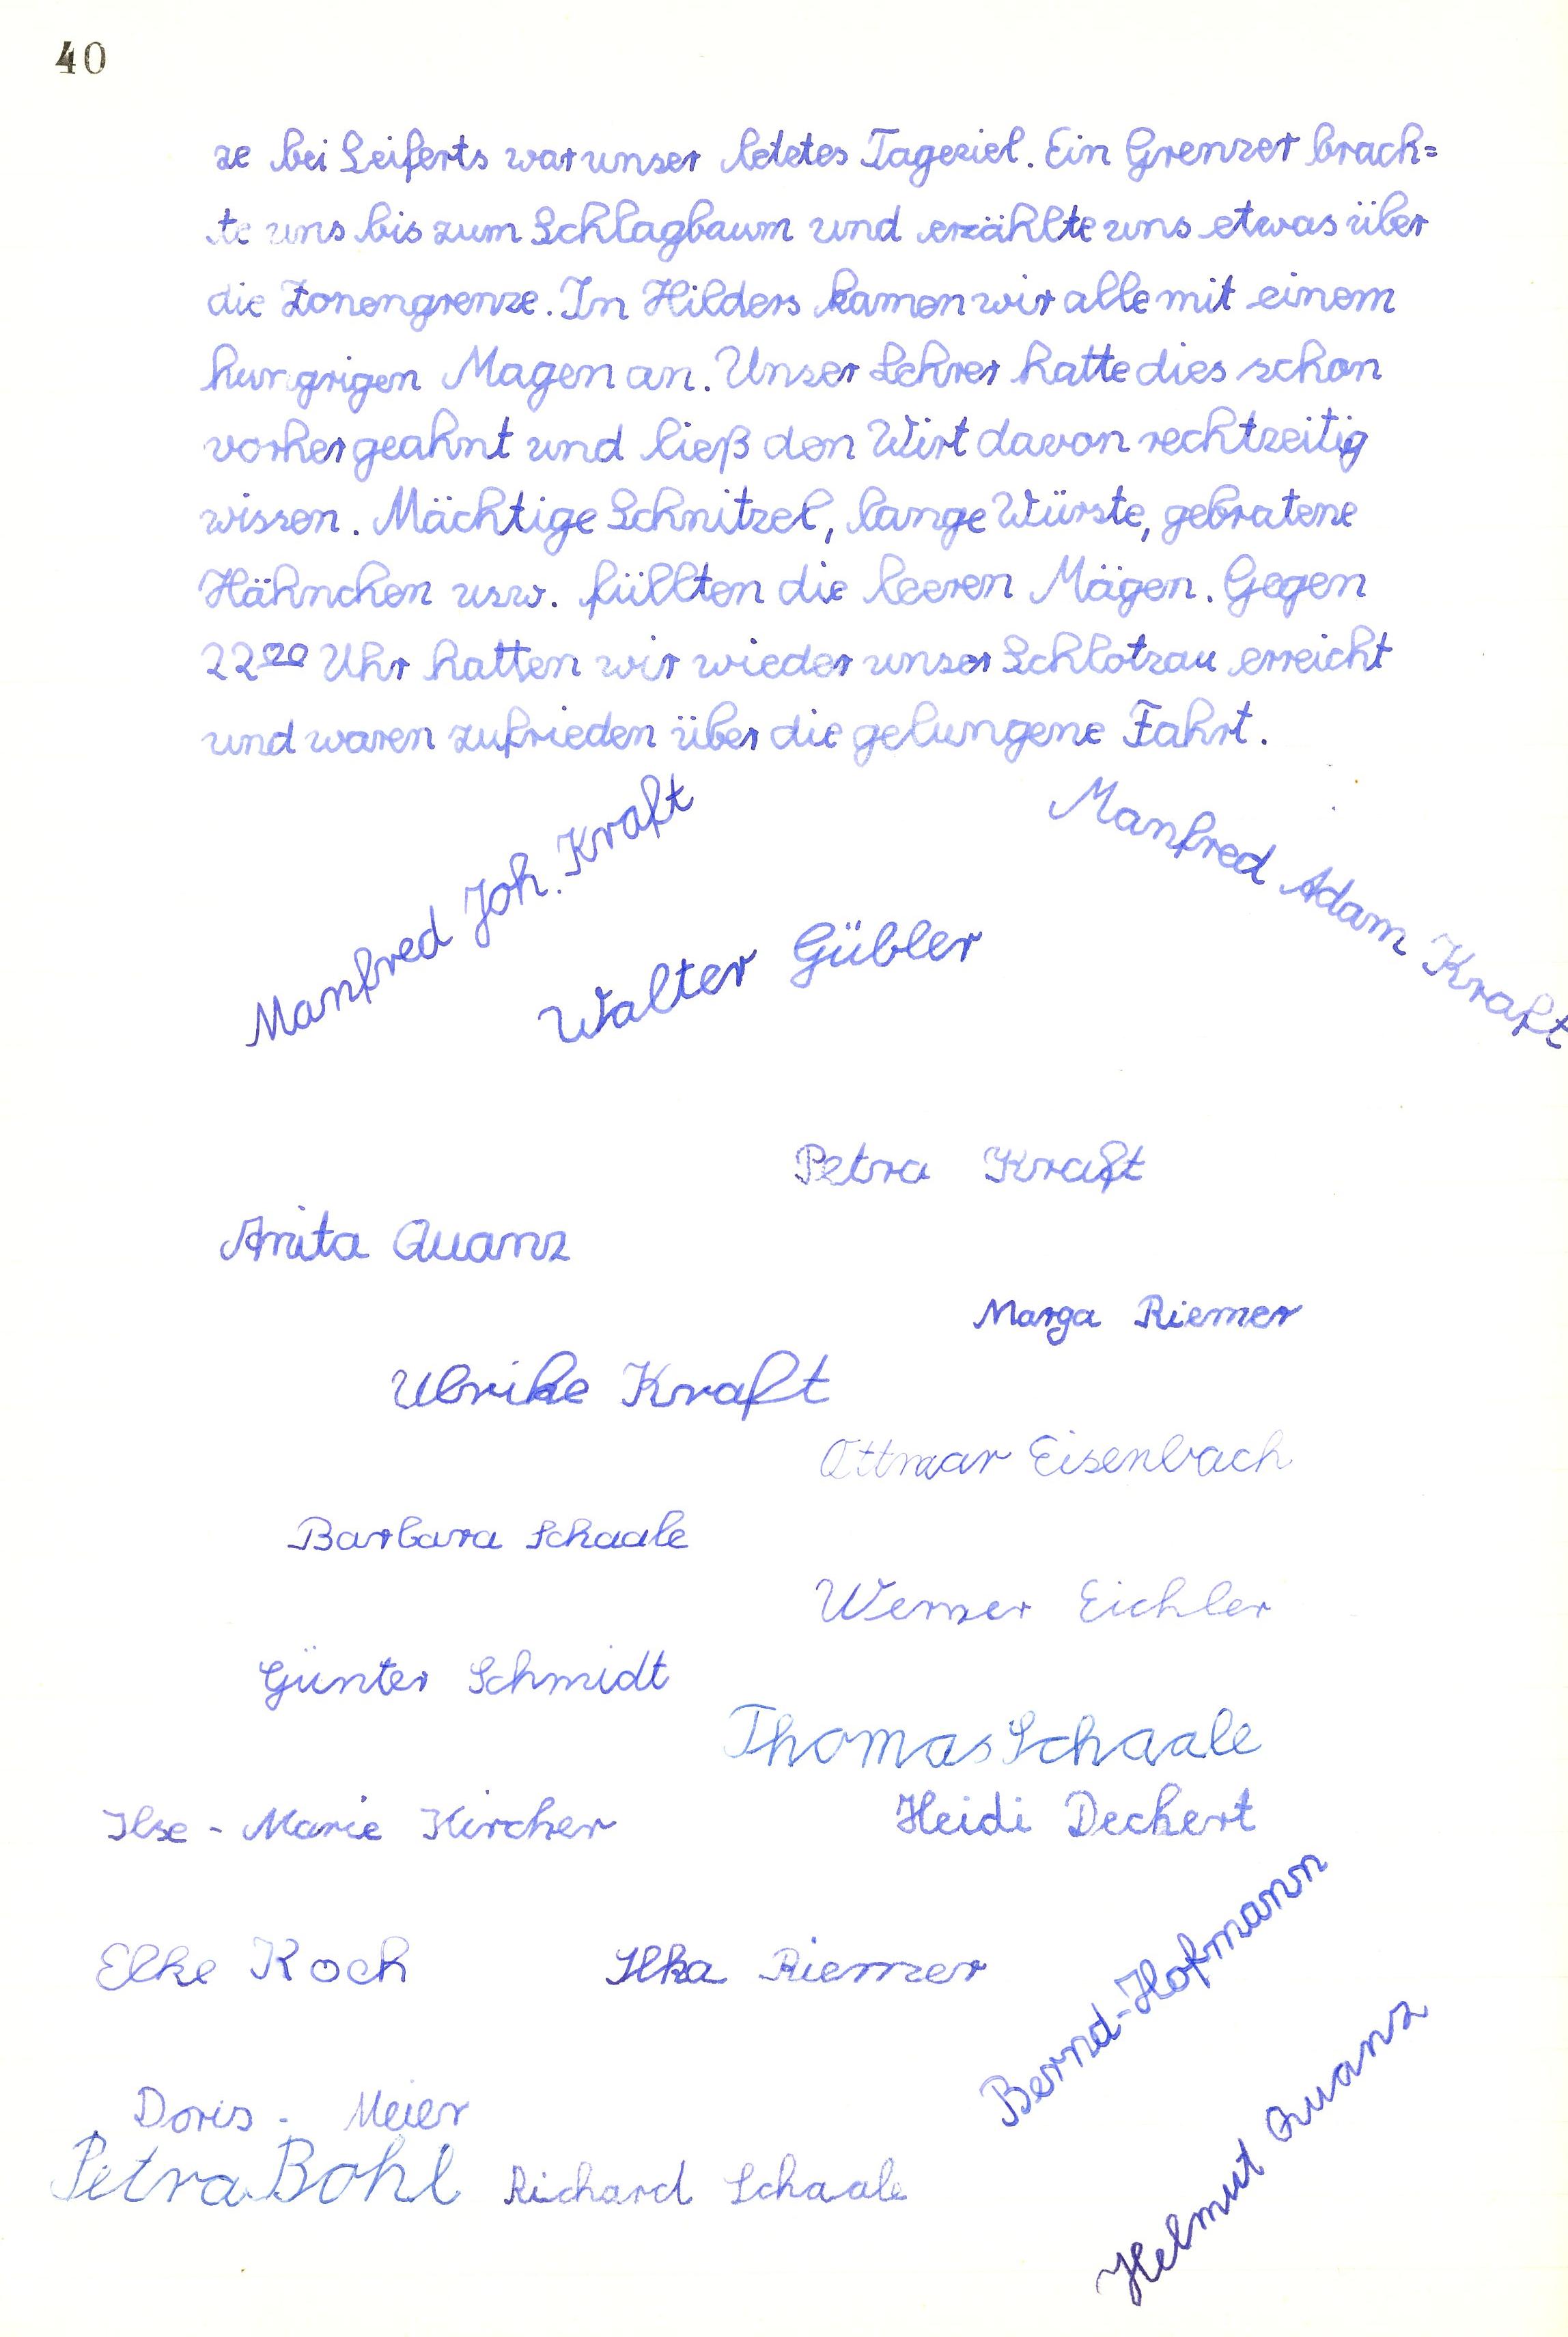 40
ze bei Seiferts war unser letztes Tagesziel. Ein Grenzer brach=
te uns bis zum Schlagbaum und erzählte uns etwas über
die Zonengrenze. In Hilders kamen wir alle mit einem
hungrigen Magen an. Unser Lehrer hatte dies schon
vorher geahnt und ließ den Wirt davon rechtzeitig
wissen. Mächtige Schnitzel, lange Würste, gebratene
Hähnchen usw. füllten die leeren Mägen. Gegen
22²⁰ Uhr hatten wir wieder unser Schlotzau erreicht
und waren zufrieden über die gelungene Fahrt.
Manfred Joh. Kraft
Manfred Adam Kraft
Walter Gübler
Petra Kraft
Anita Quanz
Marga Riemer
Ulrike Kraft
Ottmar Eisenbach
Barbara Schaale
Werner Eichler
Günter Schmidt
Thomas Schaale
Ilse - Marie Kircher
Heidi Dechert
Bernd-Hofmann
Elke Koch
Ilka Riemer
Helmut Quanz
Doris - Meier
Petra Bohl
Richard Schaale